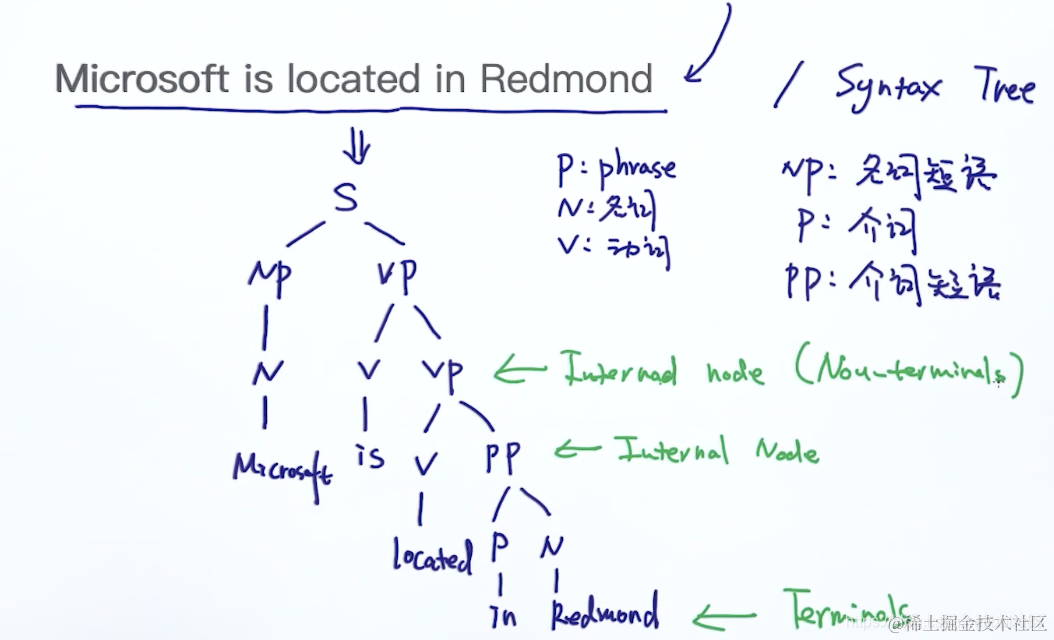 Microsoft is located in Redmond
/ Syntax Tree
P: phrase
N: 名词
V: 动词
NP: 名词短语
P: 介词
PP: 介词短语
S
NP VP
N V VP ← Internal node (Non-terminals)
Microsoft is V PP ← Internal Node
located P N
in Redmond ← Terminals
@稀土掘金技术社区